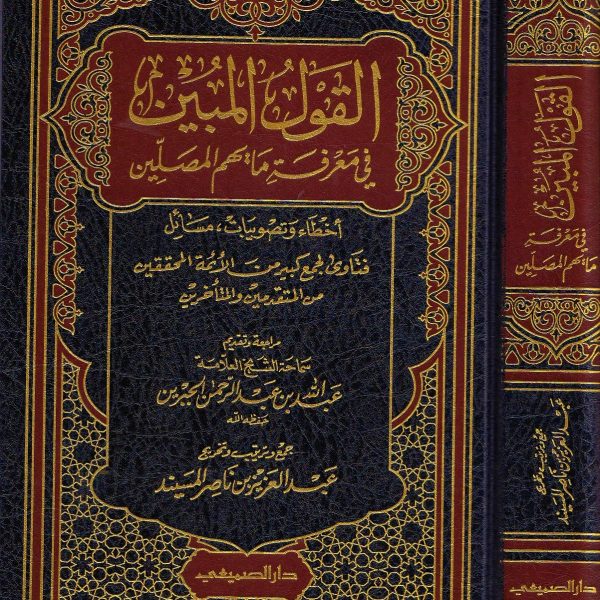 القول المبين
في معرفة ما يهم المصلين
أخطاء وتصويبات، مسائل
فتاوى لجمع كبير من الأئمة المحققين
من المتقدمين والمتأخرين
مراجعة وتقديم
سماحة الشيخ العلامة
عبد الله بن عبد الرحمن الجبرين
حفظه الله
جمع وترتيب وتخريج
عبد العزيز بن ناصر المسيند
دار الصميعي
القول المبين
في معرفة
ما يهم المصلين
جمع وترتيب وتخريج
عبد العزيز بن ناصر المسيند
دار الصميعي